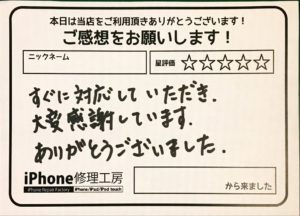 本日は当店をご利用頂きありがとうございます！
ご感想をお願いします！
ニックネーム
星評価 ☆☆☆☆☆
すぐに対応していただき、
大変感謝しています。
ありがとうございました。
iPhone修理工房
iPhone Repair Factory iPhone/iPad/iPod touch
から来ました